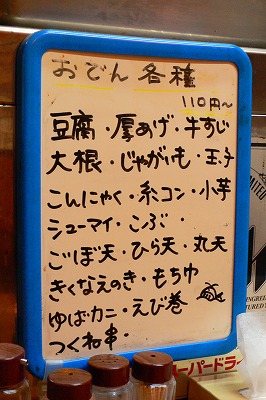 おでん各種
110円〜
豆腐・厚あげ・牛すじ
大根・じゃがいも・玉子
こんにゃく・糸コン・小芋
シューマイ・こぶ・
ごぼ天・ひら天・丸天
きくなえのき・もちゆ
ゆば・カニ・えび巻
つくね串・
ーパードラ